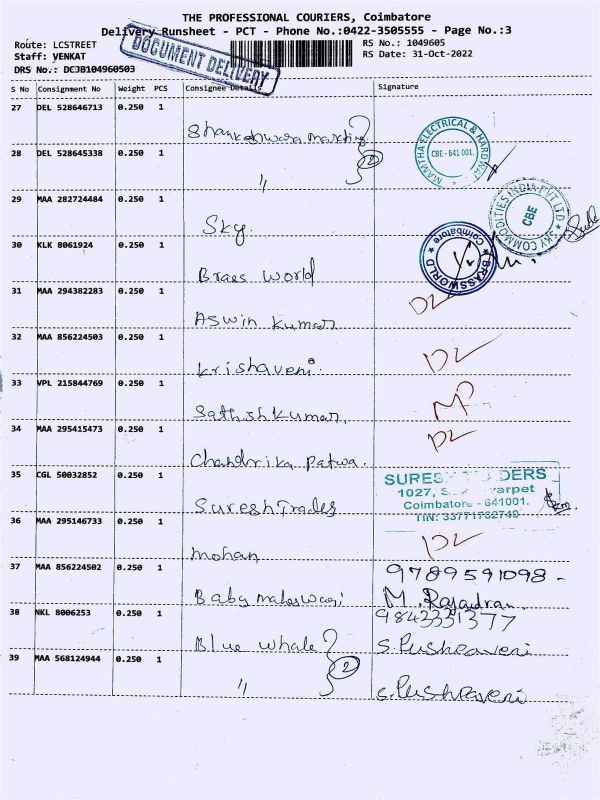 THE PROFESSIONAL COURIERS, Coimbatore
Delivery Runsheet - PCT - Phone No.:0422-3505555 - Page No.:3
Route: LCSTREET
RS No.: 1049605
Staff: VENKAT
RS Date: 31-Oct-2022
DRS No.: DCJB104960503
DOCUMENT DELIVERY
S No Consignment No Weight PCS Consignee Details Signature
27 DEL 528646713 0.250 1
Shankeshwara Marketing
MAMTHA ELECTRICAL & HARDWAR
CBE - 641 001.
28 DEL 528645338 0.250 1
" 2
29 MAA 282724484 0.250 1
Sky
SKY COMMODITIES INDIA PVT LTD
CBE
30 KLK 8061924 0.250 1
Brass World
BRASSWORLD Coimbatore
31 MAA 294382283 0.250 1
Aswin Kumar
DL
32 MAA 856224503 0.250 1
Krishaveni
DL
33 VPL 215844769 0.250 1
Sathishkumar
34 MAA 295415473 0.250 1
Chandrika Patwa.
DL
35 CGL 50032852 0.250 1
Suresh Trades
SURES DERS
1027, S arpet
Coimbatore - 641001.
TIN: 33771762740
36 MAA 295146733 0.250 1
Mohan
DL
37 MAA 856224502 0.250 1
9789591098 -
Baby maheswari M. Rajendran
38 NKL 8006253 0.250 1
9843331377
Blue whale S. Pushpaveni
39 MAA 568124944 0.250 1
" 2 S. Pushpaveni